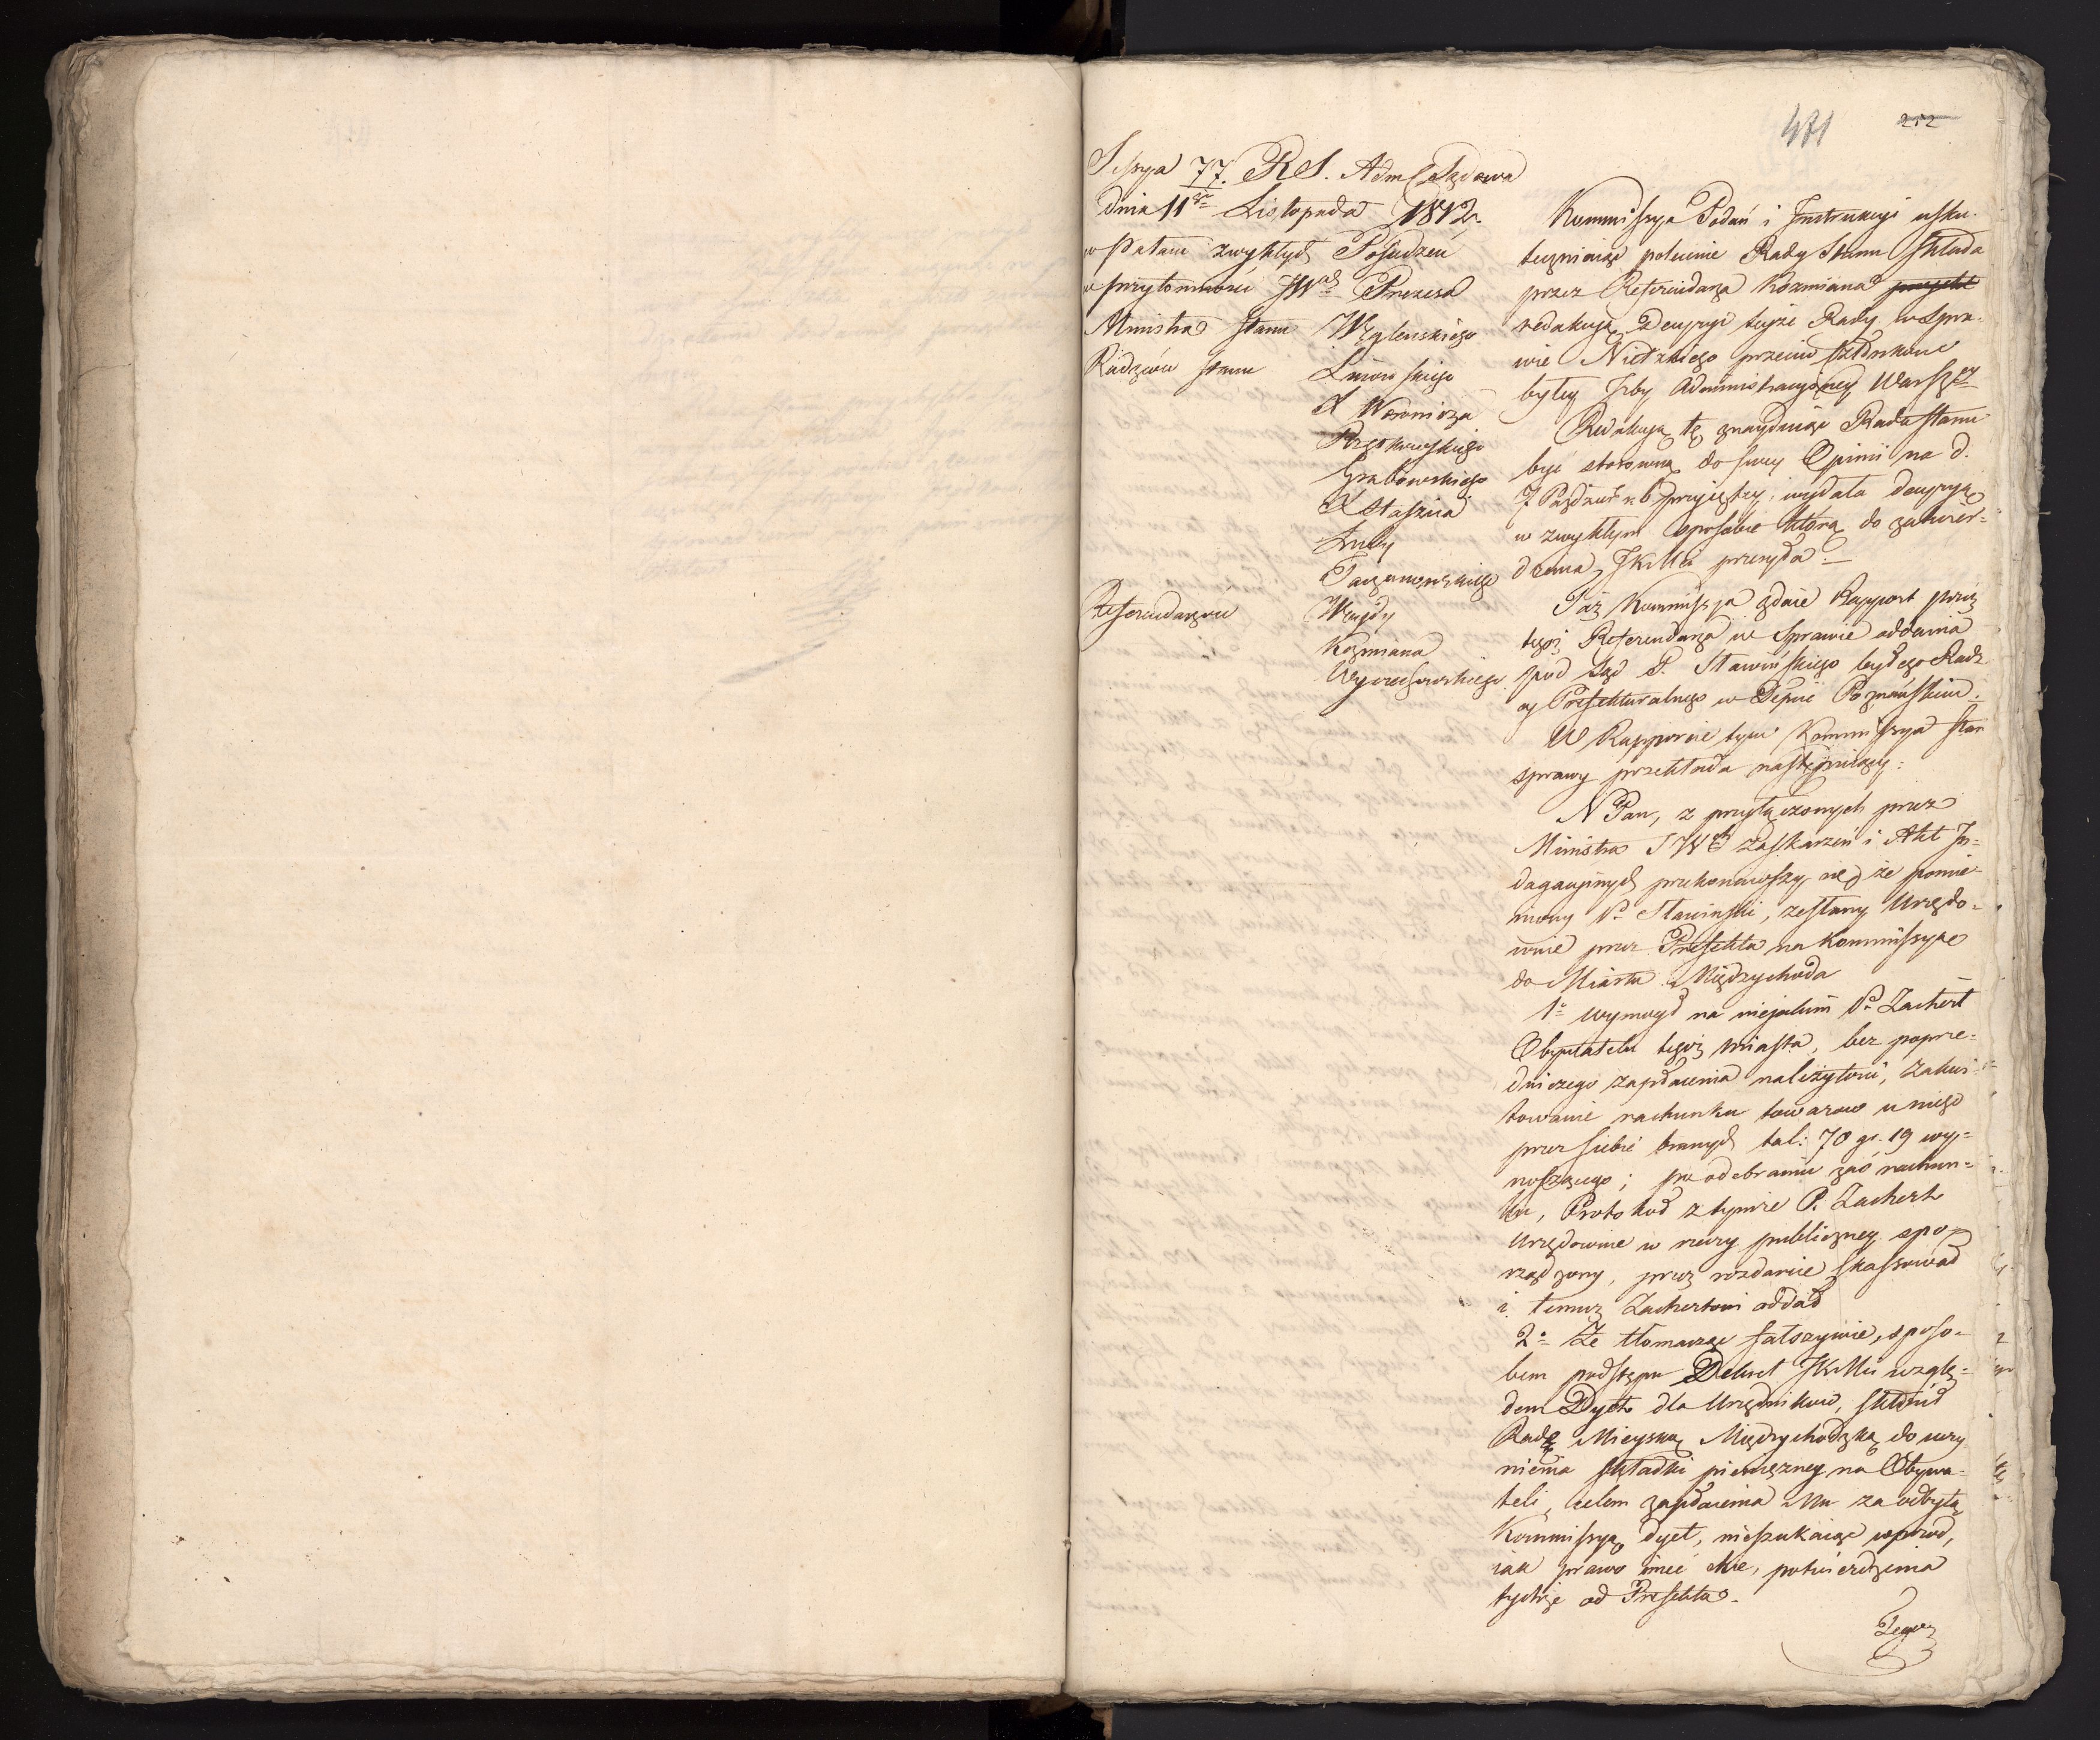 471 252
Sessya 77. RS. Adm Sądowa
dnia 11go Listopada 1812r.
w Pałacu zwykłych Posiedzeń
w przytomności JWch Prezesa
Ministra Stanu Węgleńskiego
Radzców Stanu Linowskiego
X Woronicza
Grabowskiego
X Staszica
Łuby
Referendarzów Węgdy
Koźmiana
Wyczechowskiego
Kommissya Podań i Instrukcyi usku-
teczniaiąc polecenie Rady Stanu składa
przez Referendarza Kozmiana projekt
redakcyą Decyzyi teyże Rady w spra-
wie Nietzkiego przeciw członkowi
byłey Izby Administracyyney Warszey
Redakcyą tę znayduiąc Rada Stanu
być stosowną do swey Opinii na d.
7 Paździer: r. b. przyiętey, wydała decyzyą
w zwykłym sposobie którą do zatwier-
dzenia JKMci przesyła.
Taż Kommissya zdaie Rapport przez
tegoż Referendarza w sprawie oddania
pod Sąd P. Sławińskiego byłego Radz
cy Prefekturalnego w Depcie Poznańskim.
W Rapporcie tym Kommissya stan
sprawy przekłada następuiący:
N Pan, z przyłączonych przez
Ministra S W zaskarżeń i Akt In-
dagacyinych przekonawszy się, że pomie-
niony P. Sławiński, zesłany Urzędo-
wnie przez Prefekta na Kommissyą
do Miasta Międzychoda
1o wymógł na niejakim P. Zachert
Obywatelu tegoż miasta, bez poprze-
dniczego zapłacenia należytości, zakwi-
towanie rachunku towarów u niego
przez siebie branych tal: 70 gr. 19 wy-
noszącego; po odebraniu zaś rachun-
ku, Protokuł z tymże P. Zachert
Urzędownie w rzeczy publiczney spo-
rządzony, przez rozdarcie skassował
i temuż Zachertowi oddał
2o Że tłomacząc fałszywie, sposo-
bem podstępu Dekret JKMci wzglę-
dem Dyet dla Urzędników, skłonił
Radę Mieyską Międzychodzką do uczy
nienia składki pieniężney na Obywa-
teli, celem zapłacenia Mu za odbytą
Kommissyą dyet, nieszukaiąc wprzód,
iak prawo mieć chce, potwierdzenia
tychże od Prefekta.